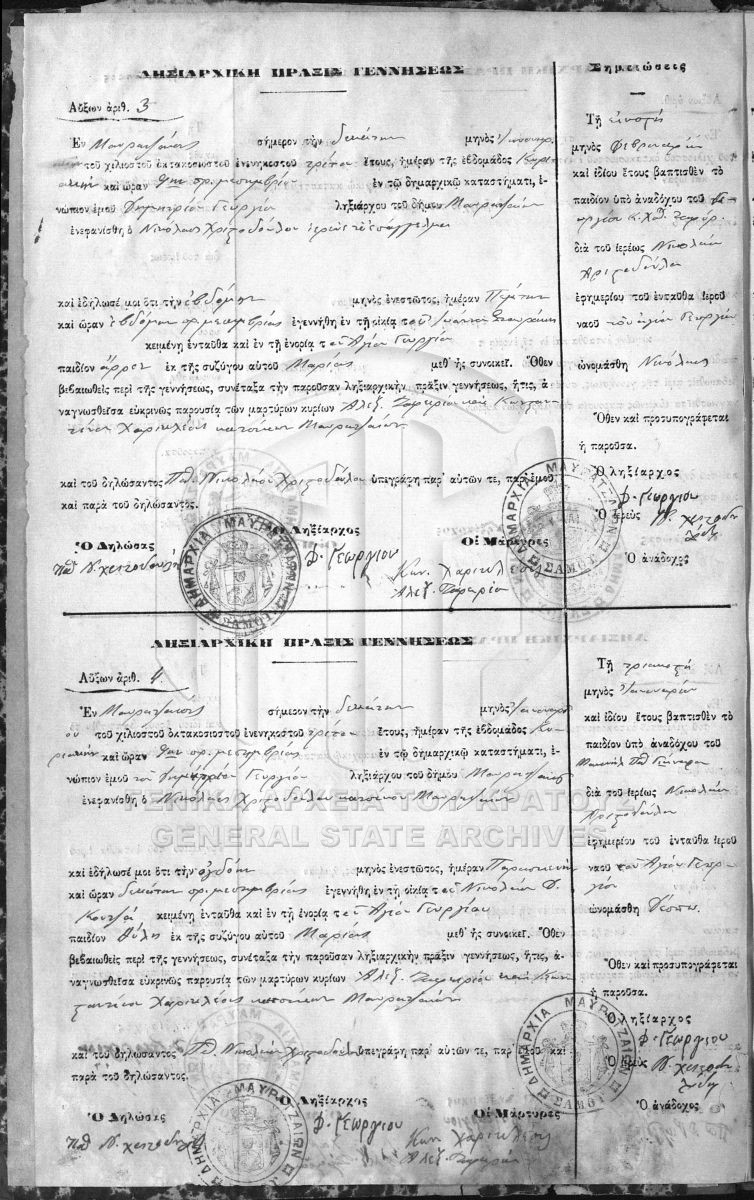 ΛΗΞΙΑΡΧΙΚΗ ΠΡΑΞΙΣ ΓΕΝΝΗΣΕΩΣ
Αὔξων ἀριθ. 3
Ἐν σήμερον τὴν δεκάτην μηνὸς
τοῦ χιλιοστοῦ ὀκτακοσιοστοῦ ἐνενηκοστοῦ τρίτου ἔτους, ἡμέραν τῆς ἑβδομάδος Κυρι
ακὴν καὶ ὥραν 9ην πρ. μεσημβρίας ἐν τῷ δημαρχικῷ καταστήματι, ἐ-
νώπιον ἐμοῦ Δημητρίου Γεωργίου ληξιάρχου τοῦ δήμου
ἐνεφανίσθη ὁ Νικόλαος Χριστοδούλου ἱερεὺς τὸ ἐπάγγελμα
καὶ ἐδήλωσέ μοι ὅτι τὴν ἑβδόμην μηνὸς ἐνεστῶτος, ἡμέραν Πέμπτην
καὶ ὥραν ἑβδόμην πρ. μεσημβρίας ἐγεννήθη ἐν τῇ οἰκίᾳ τοῦ Ἰωάννου
κειμένῃ ἐνταῦθα καὶ ἐν τῇ ἐνορίᾳ τοῦ Ἁγίου Γεωργίου
παιδίον ἄρρεν ἐκ τῆς συζύγου αὐτοῦ Μαρίας μεθ' ἧς συνοικεῖ. Ὅθεν
βεβαιωθεὶς περὶ τῆς γεννήσεως, συνέταξα τὴν παροῦσαν ληξιαρχικὴν πρᾶξιν γεννήσεως, ἥτις, ἀ-
ναγνωσθεῖσα εὐκρινῶς παρουσίᾳ τῶν μαρτύρων κυρίων Ἀλεξ. καὶ Κωνσταν
τίνου Χαρικλέους κατοίκων
καὶ τοῦ δηλώσαντος Παπ Νικολάου Χριστοδούλου ὑπεγράφη παρ' αὐτῶν τε, παρ' ἐμοῦ
καὶ παρὰ τοῦ δηλώσαντος.
Ὁ Δηλώσας Ὁ Ληξίαρχος Οἱ Μάρτυρες
Δ. Γεωργίου
Κων. Χαρικλέους
ΔΗΜΑΡΧΙΑ ΜΑΥΡΑΤΖΑΙΩΝ
ΣΑΜΟΥ
Σημειώσεις
Τῇ εἰκοστῇ
μηνὸς Φεβρουαρίου
καὶ ἰδίου ἔτους βαπτισθὲν τὸ
παιδίον ὑπὸ ἀναδόχου τοῦ Γε
ωργίου
διὰ τοῦ ἱερέως Νικολάου
Χριστοδούλου
ἐφημερίου τοῦ ἐνταῦθα ἱεροῦ
ναοῦ τοῦ ἁγίου Γεωργίου
ὠνομάσθη Νικόλαος
Ὅθεν καὶ προσυπογράφεται
ἡ παροῦσα.
Ὁ ληξίαρχος
Δ. Γεωργίου
Ὁ ἱερεὺς
Ὁ ἀνάδοχος
ΔΗΜΑΡΧΙΑ ΜΑΥΡΑΤΖΑΙΩΝ
ΣΑΜΟΥ
ΛΗΞΙΑΡΧΙΚΗ ΠΡΑΞΙΣ ΓΕΝΝΗΣΕΩΣ
Αὔξων ἀριθ. 4
Ἐν σήμερον τὴν δεκάτην μηνὸς Ἰανουαρί
ου τοῦ χιλιοστοῦ ὀκτακοσιοστοῦ ἐνενηκοστοῦ τρίτου ἔτους, ἡμέραν τῆς ἑβδομάδος Κυ
ριακὴν καὶ ὥραν 9ην πρ. μεσημβρίας ἐν τῷ δημαρχικῷ καταστήματι, ἐ-
νώπιον ἐμοῦ τοῦ Δημητρίου Γεωργίου ληξιάρχου τοῦ δήμου
ἐνεφανίσθη ὁ Νικόλαος Χριστοδούλου κάτοικος
ΓΕΝΙΚΑ ΑΡΧΕΙΑ ΤΟΥ ΚΡΑΤΟΥΣ
GENERAL STATE ARCHIVES
καὶ ἐδήλωσέ μοι ὅτι τὴν ὀγδόην μηνὸς ἐνεστῶτος, ἡμέραν Παρασκευὴν
καὶ ὥραν δεκάτην πρ. μεσημβρίας ἐγεννήθη ἐν τῇ οἰκίᾳ τοῦ Νικολάου Δ.
κειμένῃ ἐνταῦθα καὶ ἐν τῇ ἐνορίᾳ τοῦ Ἁγίου Γεωργίου
παιδίον θῆλυ ἐκ τῆς συζύγου αὐτοῦ Μαρίας μεθ' ἧς συνοικεῖ. Ὅθεν
βεβαιωθεὶς περὶ τῆς γεννήσεως, συνέταξα τὴν παροῦσαν ληξιαρχικὴν πρᾶξιν γεννήσεως, ἥτις, ἀ-
ναγνωσθεῖσα εὐκρινῶς παρουσίᾳ τῶν μαρτύρων κυρίων Ἀλεξ. καὶ Κων
σταντίνου Χαρικλέους κατοίκων
καὶ τοῦ δηλώσαντος Παπ Νικολάου Χριστοδούλου ὑπεγράφη παρ' αὐτῶν τε, παρ' ἐμοῦ καὶ
παρὰ τοῦ δηλώσαντος.
Ὁ Δηλώσας Ὁ Ληξίαρχος Οἱ Μάρτυρες
Δ. Γεωργίου
Κων. Χαρικλέους
ΔΗΜΑΡΧΙΑ ΜΑΥΡΑΤΖΑΙΩΝ
Τῇ τριακοστῇ
μηνὸς Ἰανουαρίου
καὶ ἰδίου ἔτους βαπτισθὲν τὸ
παιδίον ὑπὸ ἀναδόχου τοῦ
διὰ τοῦ ἱερέως Νικολάου
Χριστοδούλου
ἐφημερίου τοῦ ἐνταῦθα ἱεροῦ
ναοῦ τοῦ Ἁγίου Γεωρ
γίου
ὠνομάσθη Δέσπω.
Ὅθεν καὶ προσυπογράφεται
ἡ παροῦσα.
Ὁ ληξίαρχος
Δ. Γεωργίου
Ὁ ἱερεὺς
Ὁ ἀνάδοχος
ΔΗΜΑΡΧΙΑ ΜΑΥΡΑΤΖΑΙΩΝ
ΣΑΜΟΥ